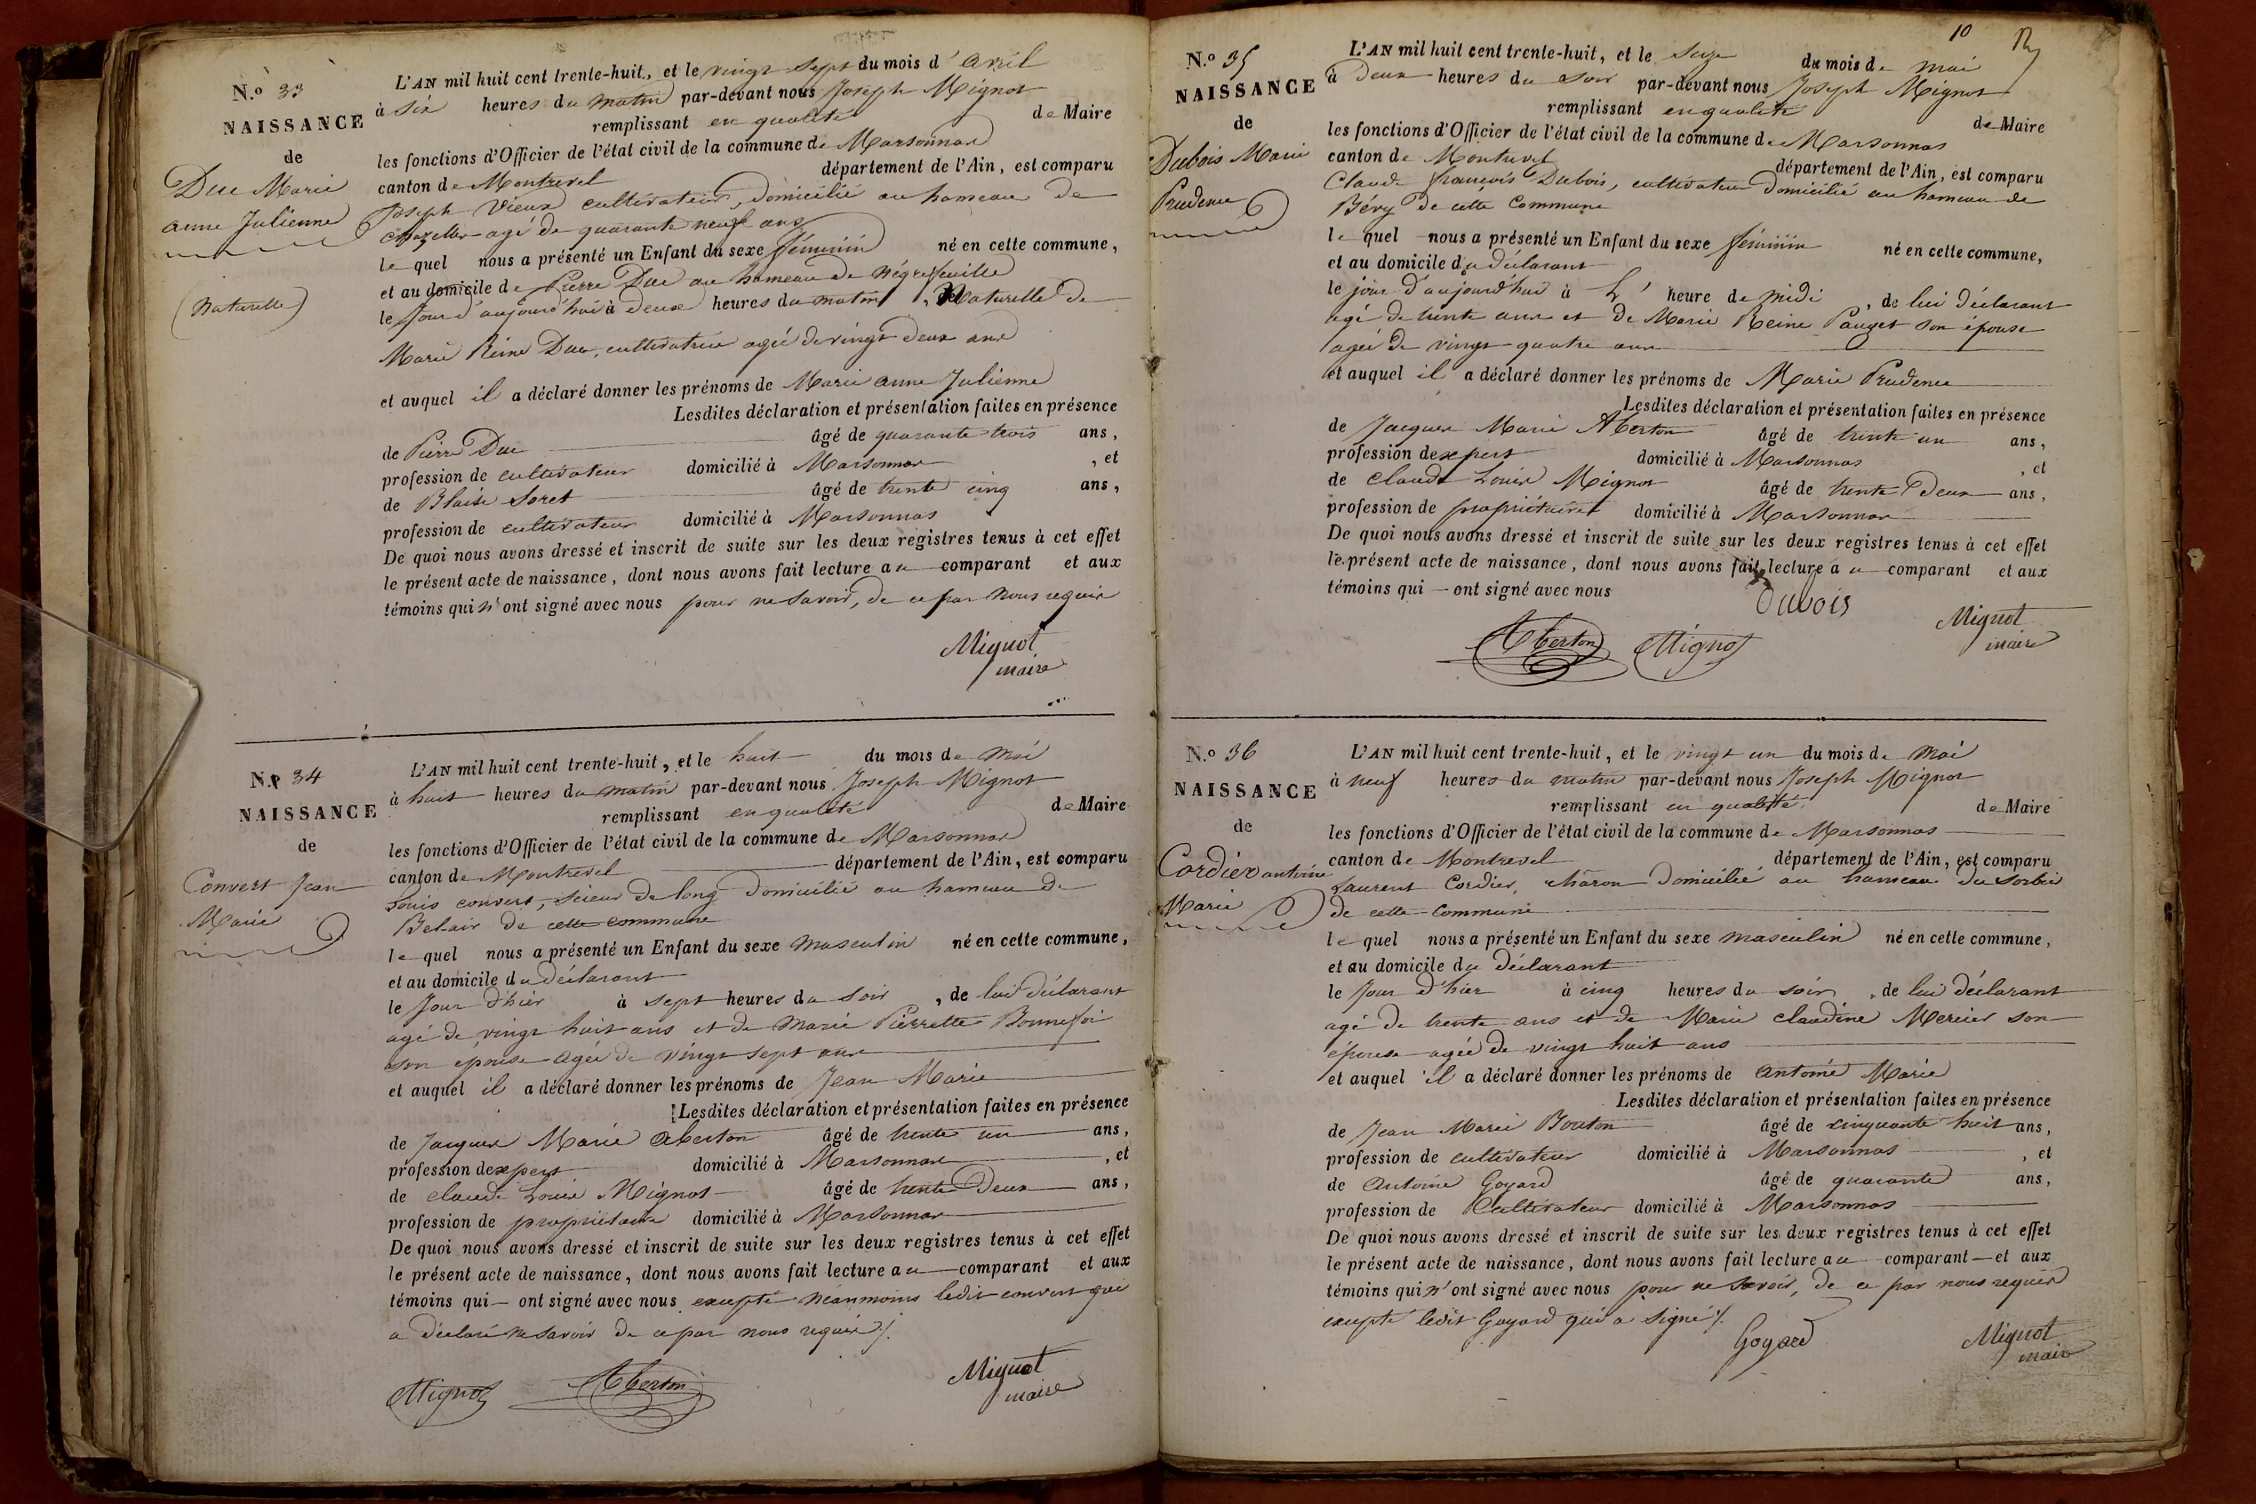 N.o 33
NAISSANCE
de
Duc Marie
anne Julienne
(naturelle)
L'AN mil huit cent trente-huit, et le vingt sept du mois d' avril
à six heures du matin par-devant nous Joseph Mignot
remplissant en qualité de Maire
les fonctions d'Officier de l'état civil de la commune de Marsonnas
canton de Montrevel département de l'Ain, est comparu
Joseph Vieux cultivateur, domicilié au hameau de
Chazelles agé de quarante neuf ans
le quel nous a présenté un Enfant du sexe féminin né en cette commune,
et au domicile de Pierre Duc au hameau de négrefeuille
le jour d'aujourd'hui à deux heures du matin, Naturelle de
Marie Reine Duc, cultivatrice agée de vingt deux ans
et auquel il a déclaré donner les prénoms de Marie anne Julienne
Lesdites déclaration et présentation faites en présence
de Pierre Duc âgé de quarante trois ans,
profession de cultivateur domicilié à Marsonnas, et
de Blaise Loret âgé de trente cinq ans,
profession de cultivateur domicilié à Marsonnas
De quoi nous avons dressé et inscrit de suite sur les deux registres tenus à cet effet
le présent acte de naissance, dont nous avons fait lecture au comparant et aux
témoins qui n'ont signé avec nous pour ne savoir, de ce par nous requis
Mignot
maire
N.o 34
NAISSANCE
de
Convert Jean
Marie
L'AN mil huit cent trente-huit, et le huit du mois de mai
à huit heures du matin par-devant nous Joseph Mignot
remplissant en qualité de Maire
les fonctions d'Officier de l'état civil de la commune de Marsonnas
canton de Montrevel département de l'Ain, est comparu
Louis convert, scieur de long domicilié au hameau de
Belair de cette commune
le quel nous a présenté un Enfant du sexe masculin né en cette commune,
et au domicile du déclarant
le jour d'hier à sept heures du soir, de lui déclarant
agé de vingt huit ans et de Marie Pierrette Bonnefoi
son épouse agée de vingt sept ans
et auquel il a déclaré donner les prénoms de Jean Marie
Lesdites déclaration et présentation faites en présence
de Jacques Marie Aberton âgé de trente un ans,
profession d'expert domicilié à Marsonnas, et
de claude Louis Mignot âgé de trente deux ans,
profession de propriétaire domicilié à Marsonnas
De quoi nous avons dressé et inscrit de suite sur les deux registres tenus à cet effet
le présent acte de naissance, dont nous avons fait lecture au comparant et aux
témoins qui ont signé avec nous excepté néanmoins ledit convert qui
a déclaré ne savoir de ce par nous requis ./.
Mignot Aberton Mignot
maire
10
N.o 35
NAISSANCE
de
Dubois Marie
Prudence
L'AN mil huit cent trente-huit, et le seize du mois de mai
à deux heures du soir par-devant nous Joseph Mignot
remplissant en qualité de Maire
les fonctions d'Officier de l'état civil de la commune de Marsonnas
canton de Montrevel département de l'Ain, est comparu
Claude françois Dubois, cultivateur domicilié au hameau de
Béry de cette Commune
le quel nous a présenté un Enfant du sexe féminin né en cette commune,
et au domicile du déclarant
le jour d'aujourd'hui à L' heure de midi, de lui déclarant
agé de trente ans et de Marie Reine Pauget son épouse
agée de vingt quatre ans
et auquel il a déclaré donner les prénoms de Marie Prudence
Lesdites déclaration et présentation faites en présence
de Jacques Marie Aberton âgé de trente un ans,
profession d'expert domicilié à Marsonnas, et
de claude Louis Mignot âgé de trente deux ans,
profession de propriétaire domicilié à Marsonnas
De quoi nous avons dressé et inscrit de suite sur les deux registres tenus à cet effet
le présent acte de naissance, dont nous avons fait lecture au comparant et aux
témoins qui ont signé avec nous
Dubois
Aberton Mignot Mignot
maire
N.o 36
NAISSANCE
de
Cordier antoine
Marie
L'AN mil huit cent trente-huit, et le vingt un du mois de mai
à neuf heures du matin par-devant nous Joseph Mignot
remplissant en qualité de Maire
les fonctions d'Officier de l'état civil de la commune de Marsonnas
canton de Montrevel département de l'Ain, est comparu
Laurent Cordier, charon domicilié au hameau du Sorbier
de cette Commune
le quel nous a présenté un Enfant du sexe masculin né en cette commune,
et au domicile du déclarant
le jour d'hier à cinq heures du soir, de lui déclarant
agé de trente ans et de Marie claudine Mercier son
épouse agée de vingt huit ans
et auquel il a déclaré donner les prénoms de antoine Marie
Lesdites déclaration et présentation faites en présence
de Jean Marie Bouton âgé de cinquante huit ans,
profession de cultivateur domicilié à Marsonnas, et
de antoine Goyard âgé de quarante ans,
profession de Cultivateur domicilié à Marsonnas
De quoi nous avons dressé et inscrit de suite sur les deux registres tenus à cet effet
le présent acte de naissance, dont nous avons fait lecture au comparant et aux
témoins qui n'ont signé avec nous pour ne savoir, de ce par nous requis
excepté ledit Goyard qui a signé ./.
Goyard Mignot
maire